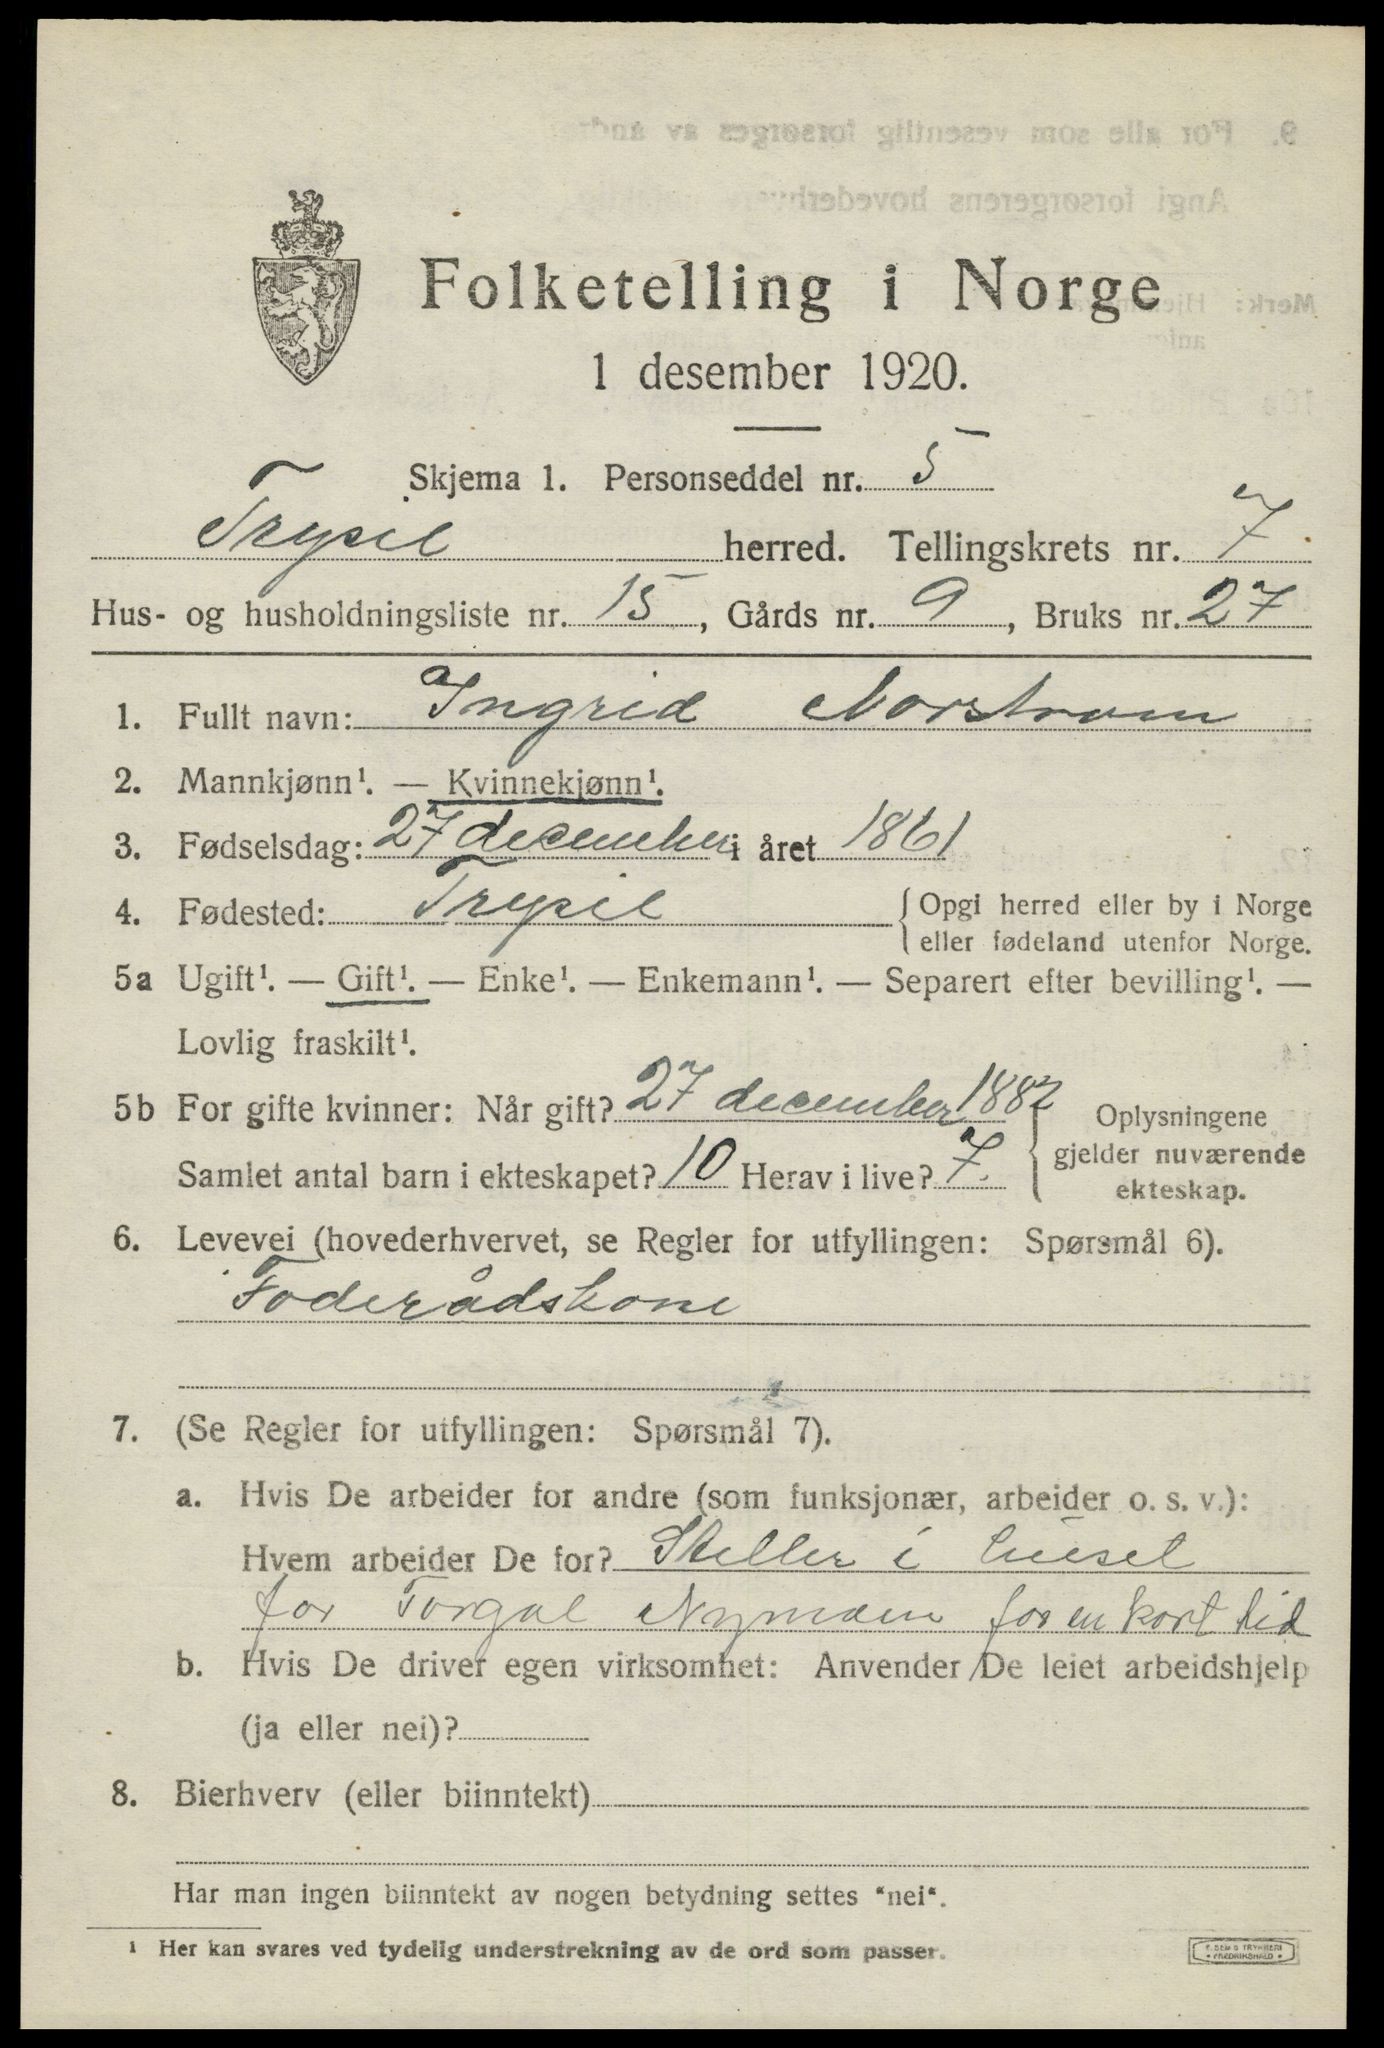 Folketelling i Norge
1 desember 1920.
Skjema 1. Personseddel nr. 5
Trysil herred. Tellingskrets nr. 7
Hus- og husholdningsliste nr. 15, Gårds nr. 9, Bruks nr. 27
1. Fullt navn: Ingrid Norstrøm
2. Mannkjønn¹. — Kvinnekjønn¹.
3. Fødselsdag: 27 december i året 1861
4. Fødested: Trysil {Opgi herred eller by i Norge
eller fødeland utenfor Norge.
5a Ugift¹. — Gift¹. — Enke¹. — Enkemann¹. — Separert efter bevilling¹. —
Lovlig fraskilt¹.
5b For gifte kvinner: Når gift? 27 december 1882
Samlet antal barn i ekteskapet? 10 Herav i live? 7.
{Oplysningene
gjelder nuværende
ekteskap.
6. Levevei (hovederhvervet, se Regler for utfyllingen: Spørsmål 6).
Foderådskone
7. (Se Regler for utfyllingen: Spørsmål 7).
a. Hvis De arbeider for andre (som funksjonær, arbeider o. s. v.):
Hvem arbeider De for? Steller i huset
for Torgal Nyman for en kort tid
b. Hvis De driver egen virksomhet: Anvender De leiet arbeidshjelp
(ja eller nei)?
8. Bierhverv (eller biinntekt)
Har man ingen biinntekt av nogen betydning settes "nei".
¹ Her kan svares ved tydelig understrekning av de ord som passer.
E. SEM'S TRYKKERI
FREDRIKSHALD